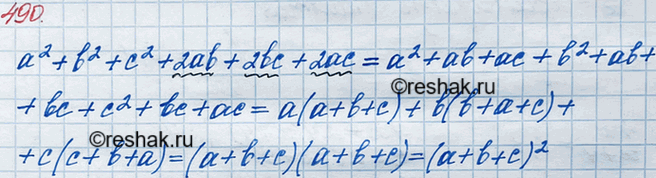 490.
a² + b² + c² + 2ab + 2bc + 2ac = a² + ab + ac + b² + ab +
+ bc + c² + bc + ac = a(a+b+c) + b(b+a+c) +
+ c(c+b+a) = (a+b+c)(a+b+c) = (a+b+c)²
©reshak.ru
©reshak.ru